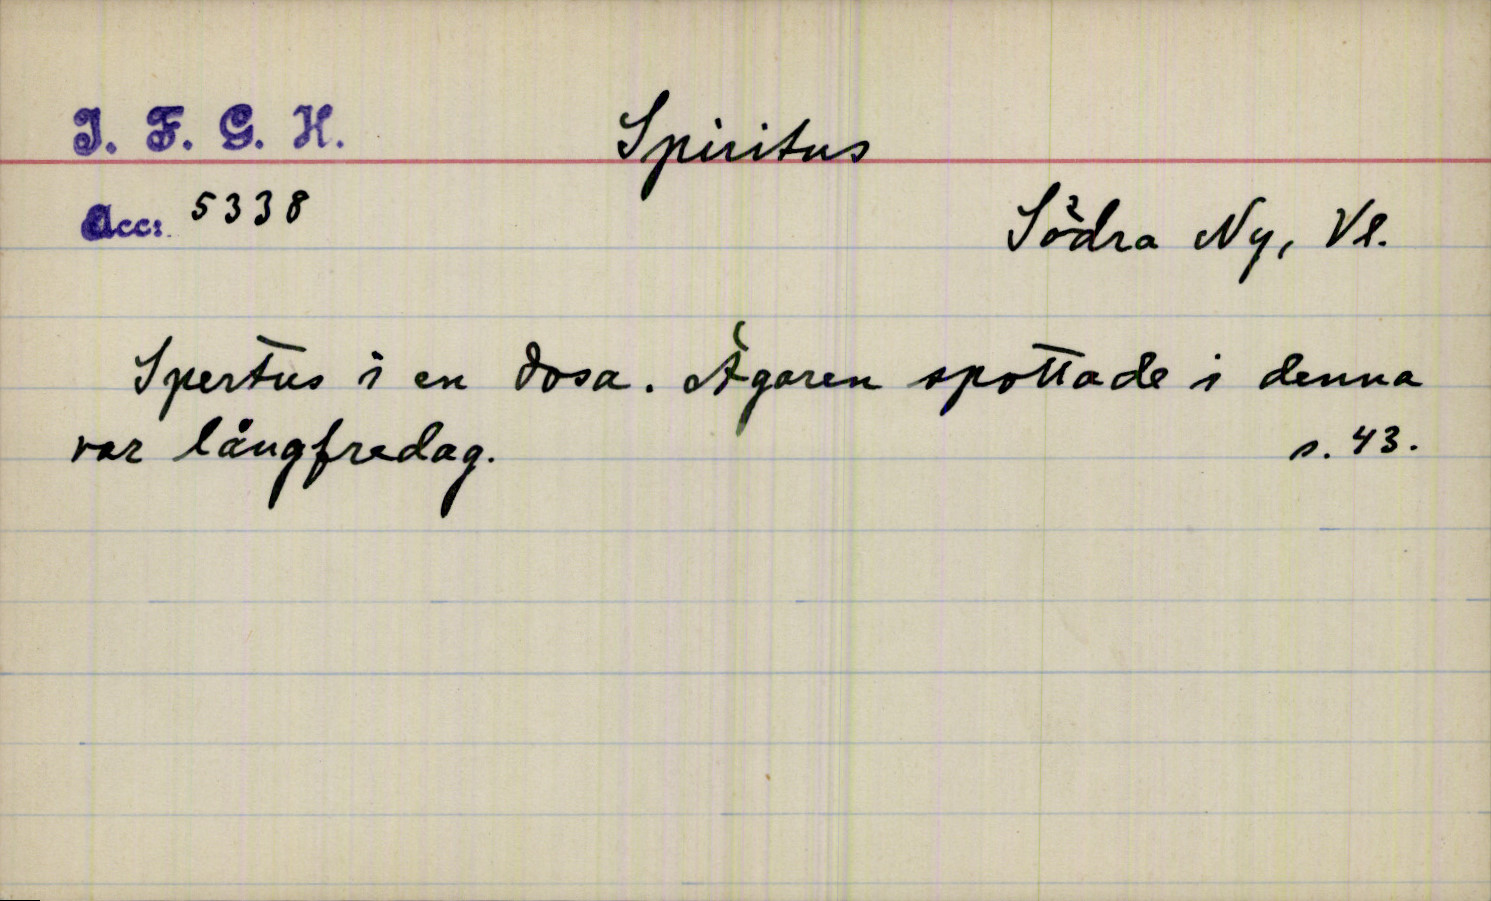 I. F. G. H.
Spiritus
Acc: 5338
Södra Ny, Vl.
Spertus i en dosa. Ägaren spottade i denna
var långfredag. s. 43.